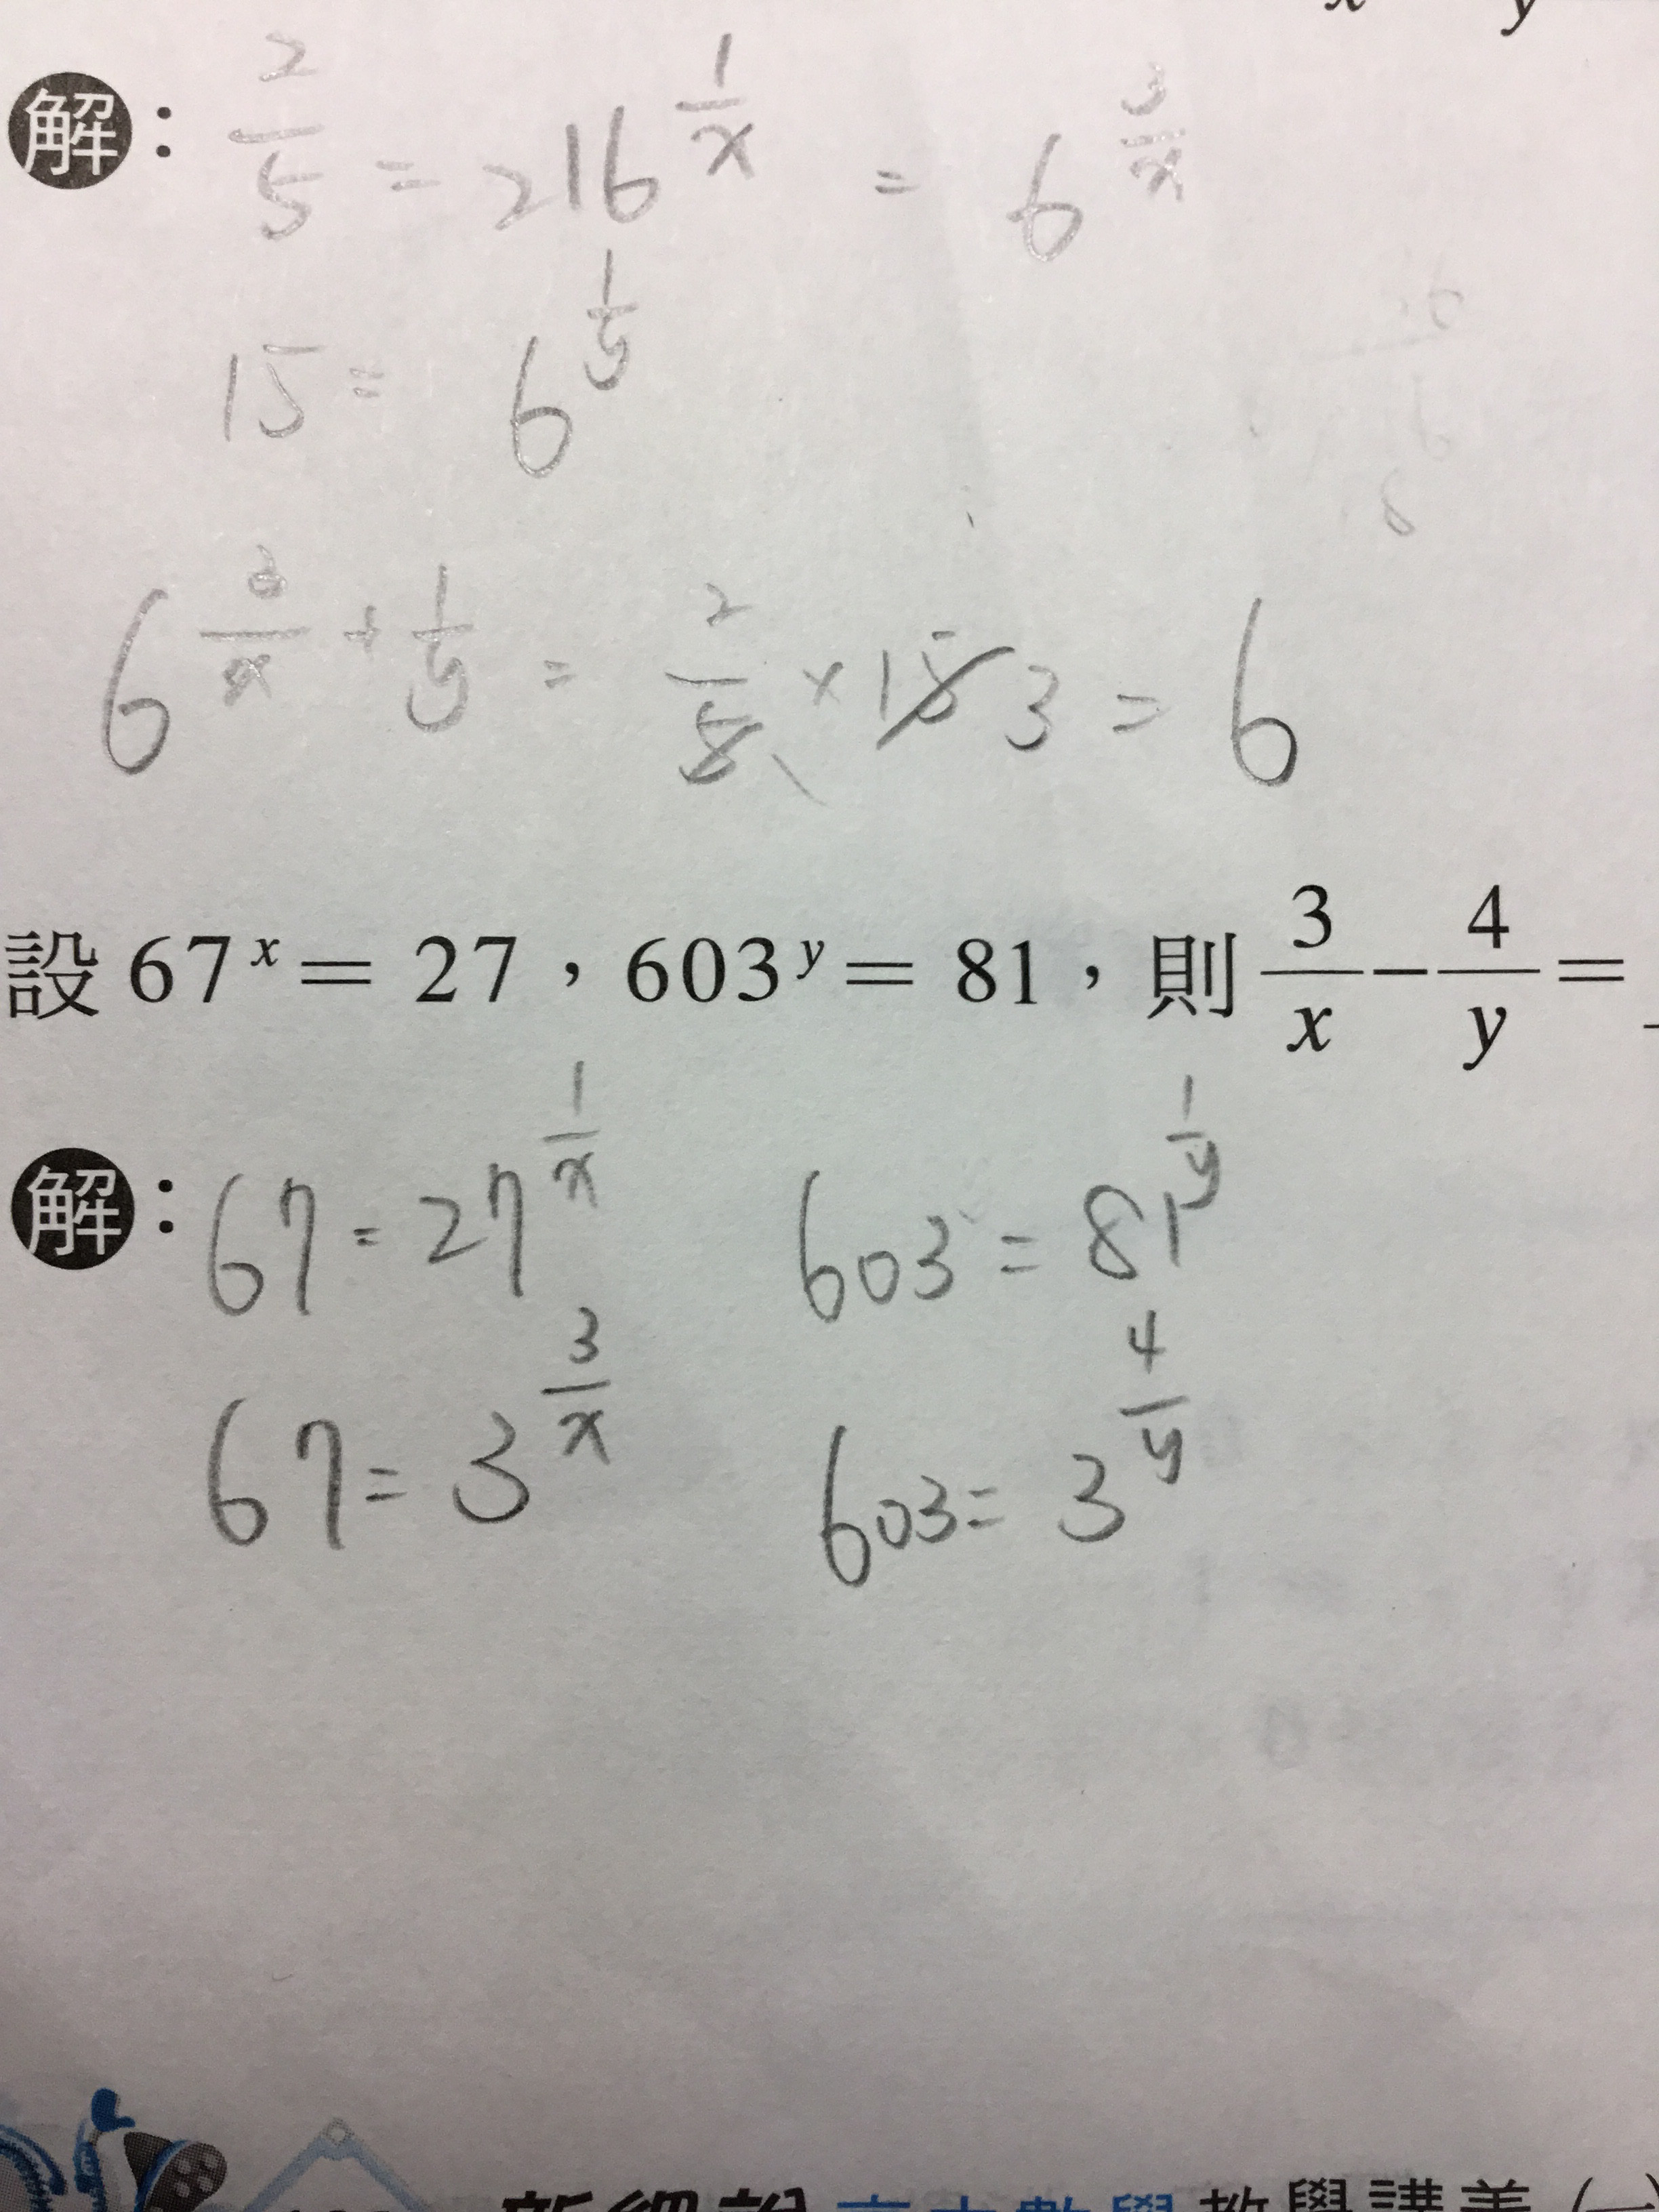 x y
解： 2/5 = 216^(1/x) = 6^(3/x)
15 = 6^(1/y)
6^(3/x + 1/y) = 2/5 × 15 3 = 6
設 67^x = 27，603^y = 81，則 3/x − 4/y =
解： 67 = 27^(1/x) 603 = 81^(1/y)
67 = 3^(3/x) 603 = 3^(4/y)
教學講義 (一)